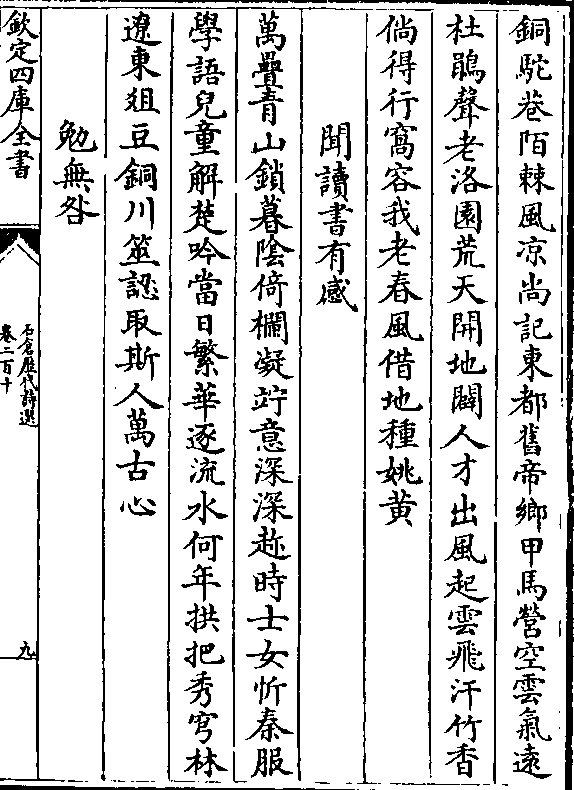 銅駝巷陌棘風凉尚記東都舊帝鄉甲馬營空雲氣遠
杜鵑聲老洛園荒天開地闢人才出風起雲飛汗竹香
倘得行窩容我老春風借地種姚黄
聞讀書有感
萬疊青山鎖暮陰倚欄凝竚意深深趂時士女忻秦服
學語兒童解楚吟當日繁華逐流水何年拱把秀穹林
遼東俎豆銅川筮認取斯人萬古心
勉無咎
欽定四庫全書
石倉歷代詩選
卷二百十
九